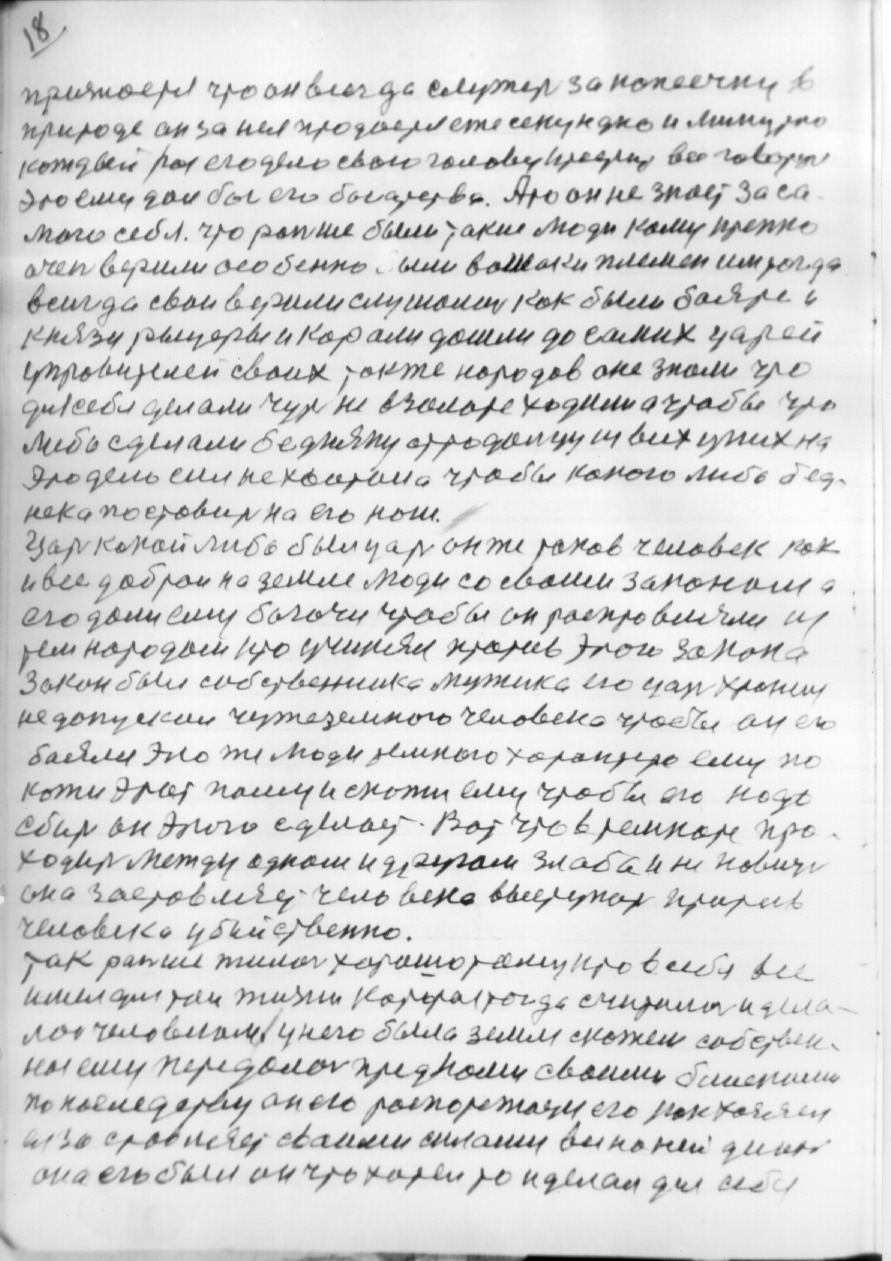 18
что он всегда служит за копеечку в
природе он за нея продается ежесекундно и минутно
каждый раз его дело свою голову всо говорит
это ему дал бог его богатства. А то он не знает за са-
мого себя. что раньше были такие люди кому крепко
очен верили особенно были вожаки племен им тогда
всегда свои верили слушали как были бояре и
князи рыцеры и корали дошли до самих царей
управителей своих также народов оне знали что
для себя делали чут не в золоте ходили а чтобы что
либо сделали бедняку у них у них на
это дело сил не хватала чтобы какого либо бед-
нека поставит на его ноги.
Цар какой либо был цар он же таков человек как
и все добраи на земле люди со своим законом а
его дали ему богочи чтобы он росправлялся из
тем народом кто учинял против этого закона
Закон был собственника мужика его цар хранил
не допускал чужеземного человека чтобы он его
боялся это же люди темного характера ему по
кажи этот палец и скажи ему чтобы его надо
сбит он этого сделает. Вот что в темноте про-
ходит между одном и другом злоба и не нависть
она заставляет человека выступат против
человека убийственно.
Так раньше жилос харашо таму кто в себя все
имел для той жизни катораю тогда считалос и дела-
лос человеком у него была земля скажем собствен-
ная ему передалос предками своими
по наследству он его распорежался его как хозяен
ей за ставляет своими силами
она его был он что хател то и делал для себя